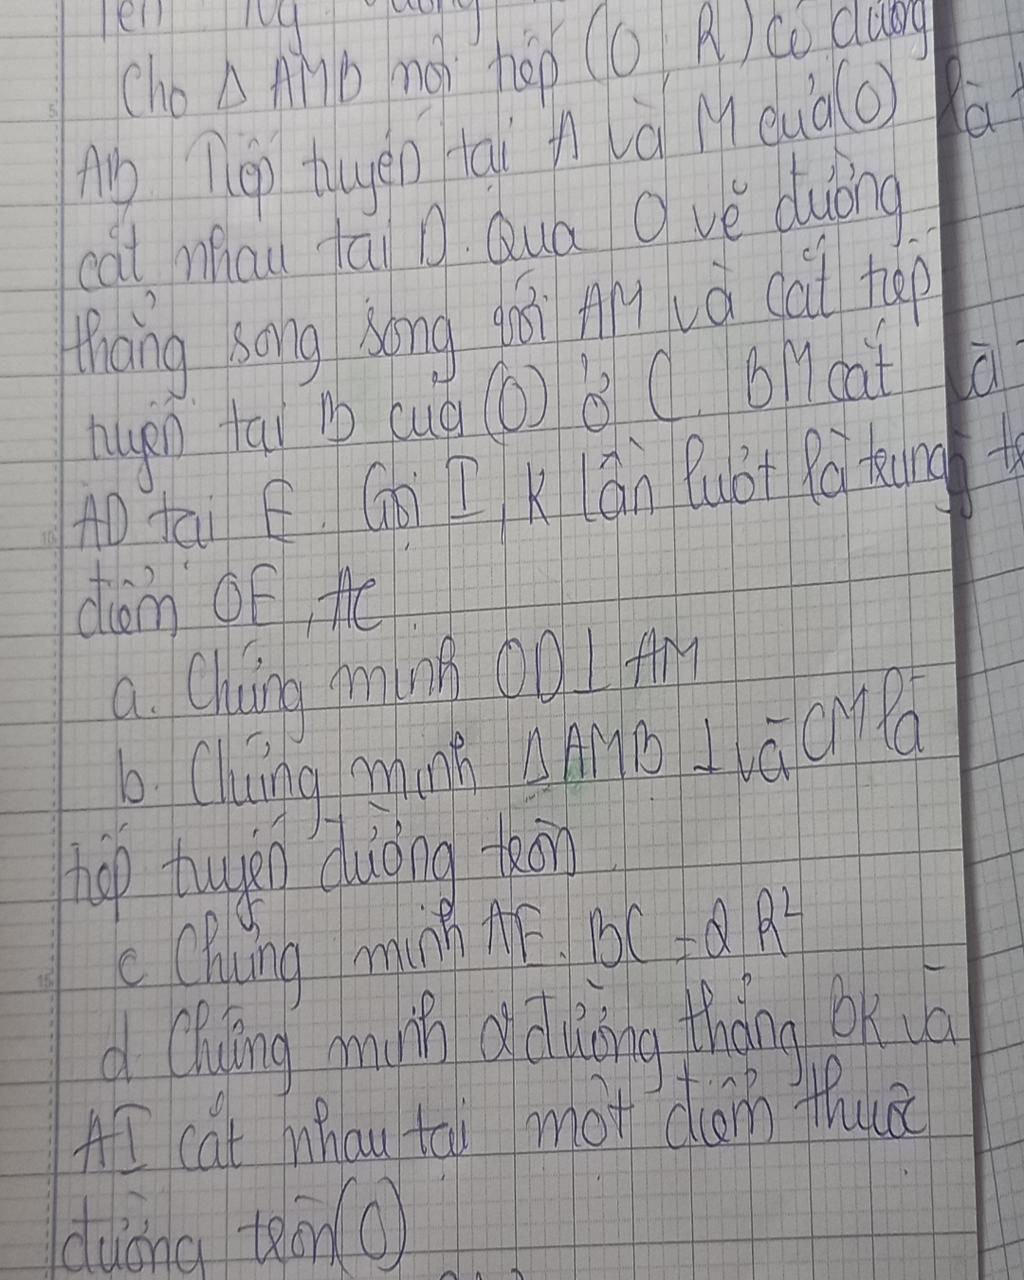 Cho Δ AMB nội tiếp (O, R) có đường
AB. Tiếp tuyến tại A và M của (O) là
cắt nhau tại D. Qua O vẽ đường
thẳng song song với AM và cắt tiếp
tuyến tại B của (O) ở C. BM cắt là
AD tại E. Gọi I, K lần lượt là trung
điểm OE, AC
a. Chứng minh OD ⊥ AM
b. Chứng minh Δ AMB ⊥ và CM là
tiếp tuyến đường tròn
c Chứng minh AE. BC = 2 R²
d Chứng minh 2 đường thẳng BK và
AI cắt nhau tại một điểm thuộc
đường tròn (O)